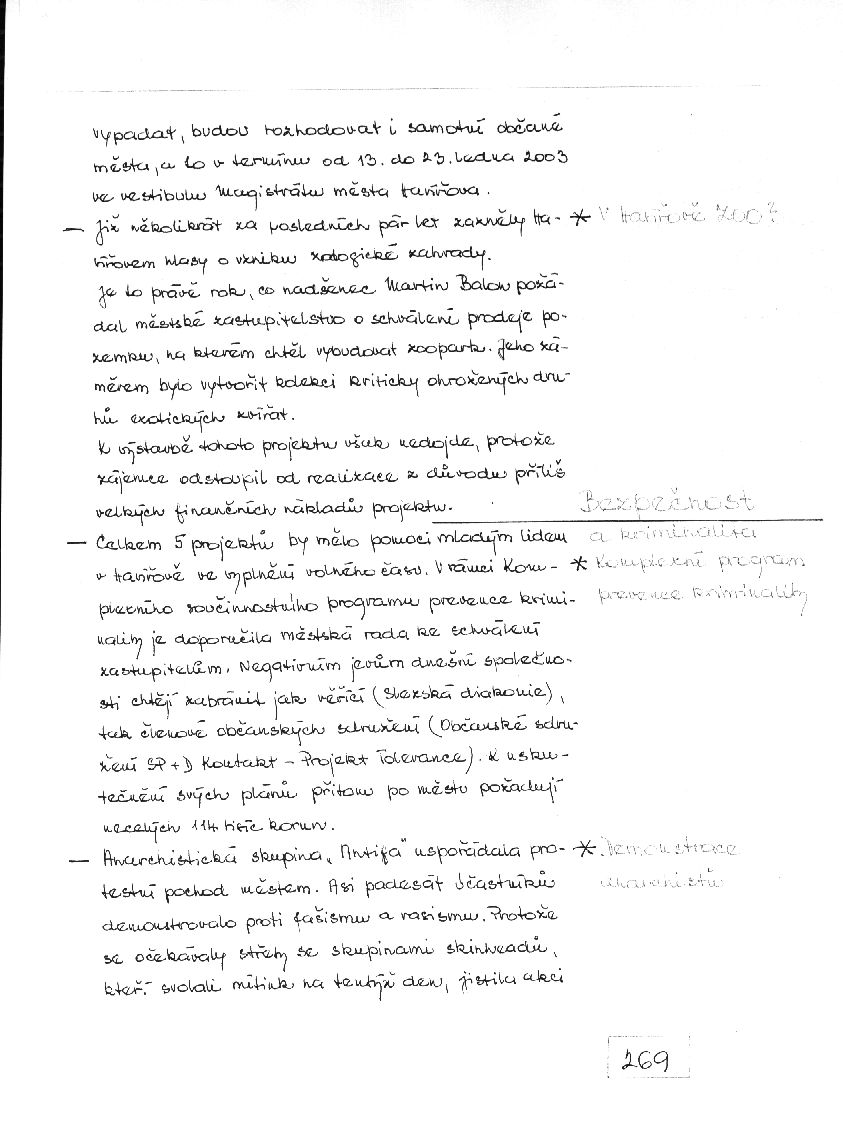 vypadat, budou rozhodovat i samotní občané
města, a to v termínu od 13. do 23. ledna 2003
ve vestibulu Magistrátu města Havířova.
— Již několikrát za posledních pár let zazněly Ha- * V Havířově ZOO?
vířovem hlasy o vzniku zoologické zahrady.
Je to právě rok, co nadšenec Martin Balon požá-
dal městské zastupitelstvo o schválení prodeje po-
zemku, na kterém chtěl vybudovat zoopark. Jeho zá-
měrem bylo vytvořit kolekci kriticky ohrožených dru-
hů exotických zvířat.
K výstavbě tohoto projektu však nedojde, protože
zájemce odstoupil od realizace z důvodu příliš
velkých finančních nákladů projektu. Bezpečnost
— Celkem 5 projektů by mělo pomoci mladým lidem a kriminalita
v Havířově ve vyplnění volného času. V rámci Kom- * Komplexní program
plexního součinnostního programu prevence krimi- prevence kriminality
nality je doporučila městská rada ke schválení
zastupitelům. Negativním jevům dnešní společno-
sti chtějí zabránit jak věřící (Slezská diakonie),
tak členové občanských sdružení (Občanské sdru-
žení SP+D Kontakt - Projekt Tolerance). K usku-
tečnění svých plánů přitom po městu požadují
necelých 114 tisíc korun.
— Anarchistická skupina „Antifa" uspořádala pro- * Demonstrace
testní pochod městem. Asi padesát účastníků
demonstrovalo proti fašismu a rasismu. Protože
se očekávaly střety se skupinami skinheadů,
kteří svolali mítink na tentýž den, jistila akci
269